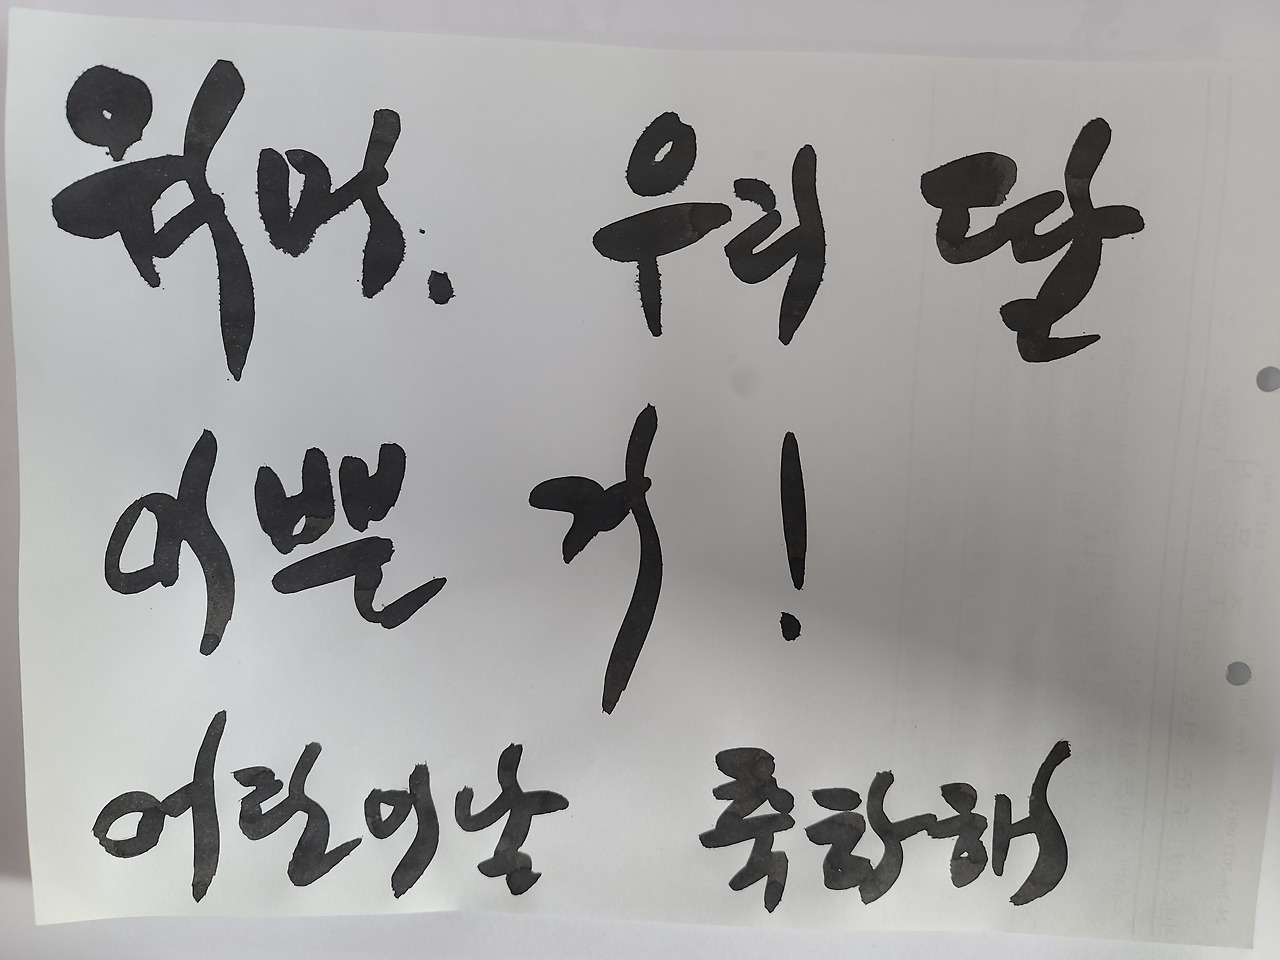 워머. 우리 딸
이쁜 거!
어린이날 축하해